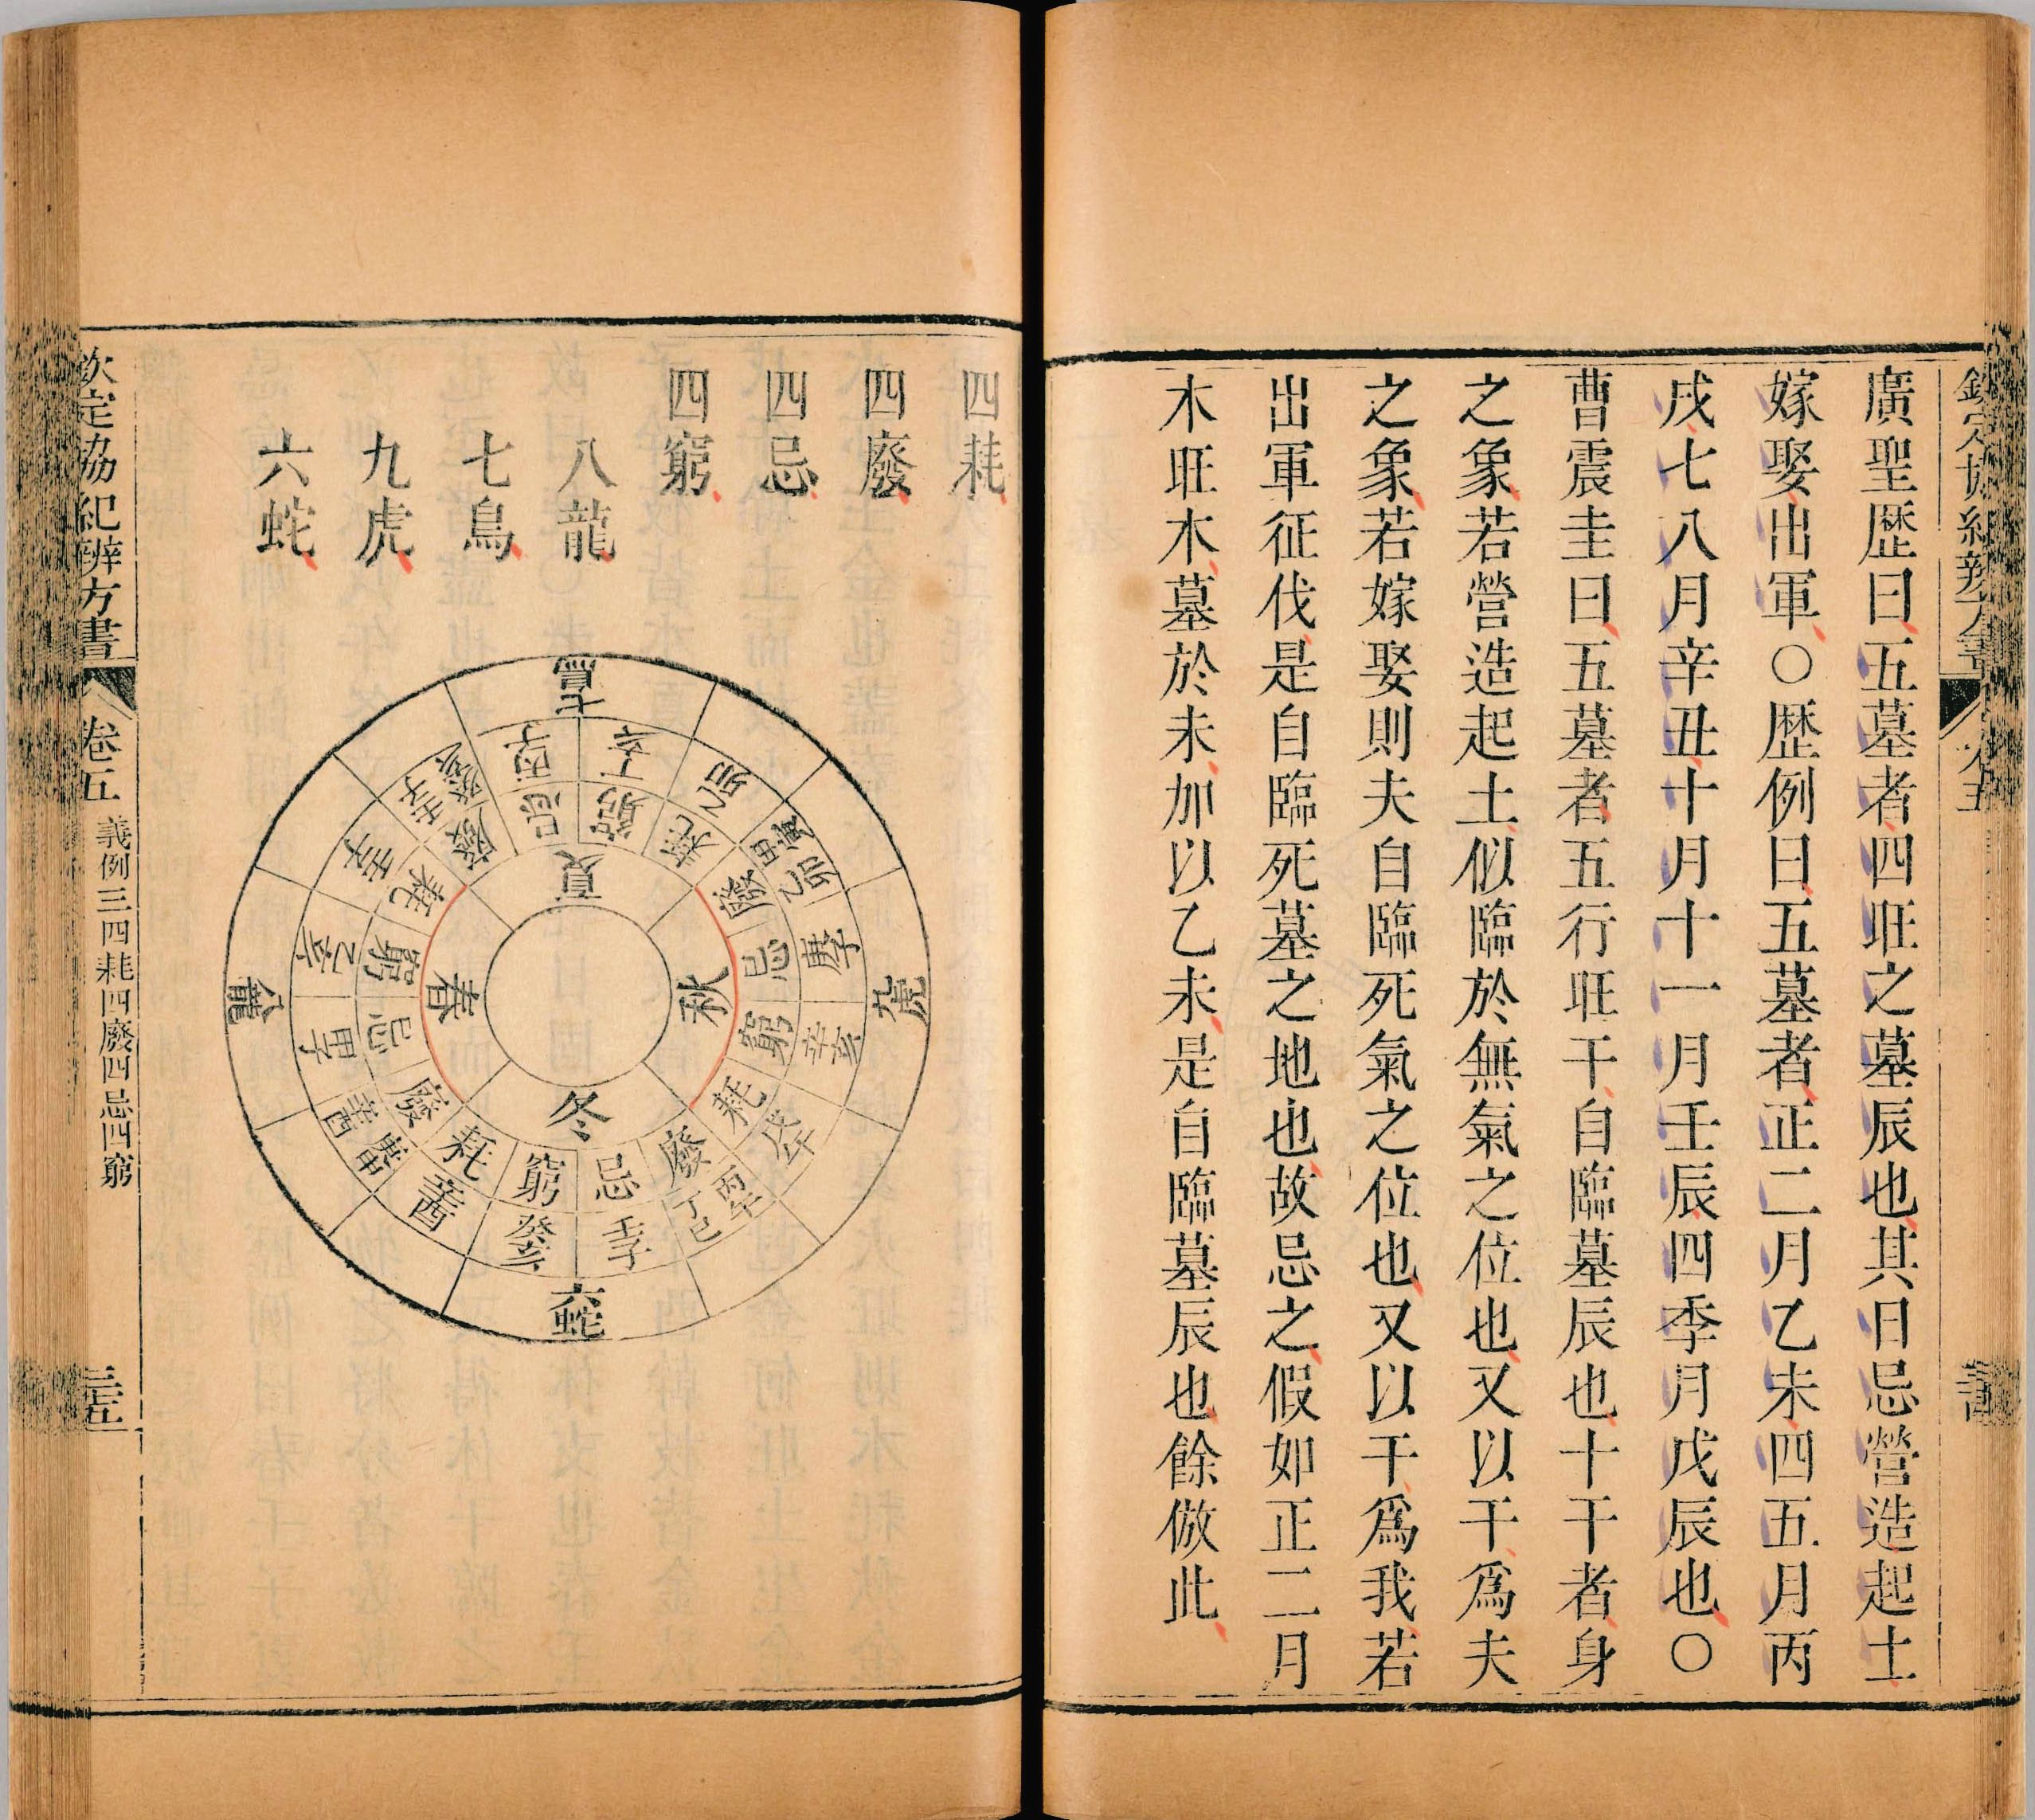 廣聖歴曰五墓者四旺之墓辰也其日忌營造起土
嫁娶出軍〇歴例曰五墓者正二月乙未四五月丙
戌七八月辛丑十月十一月壬辰四季月戊辰也〇
曹震圭曰五墓者五行旺干自臨墓辰也十干者身
之象若營造起土似臨於無氣之位也又以干爲夫
之象若嫁娶則夫自臨死氣之位也又以干爲我若
出軍征伐是自臨死墓之地也故忌之假如正二月
木旺木墓於未加以乙未是自臨墓辰也餘倣此
四耗
四廢
四忌
四窮
八龍
七鳥
九虎
六蛇
七鳥
丙子
丁亥
乙卯
甲寅
乙卯
庚子
辛亥
九虎
戊午
丙午
丁巳
壬子
癸亥
六蛇
辛酉
甲子
乙亥
八龍
壬子
廢
忌
窮
耗
廢
忌
窮
耗
廢
忌
窮
耗
廢
忌
窮
耗
夏
秋
冬
春
欽定協紀辨方書
卷五
義例三四耗四廢四忌四窮